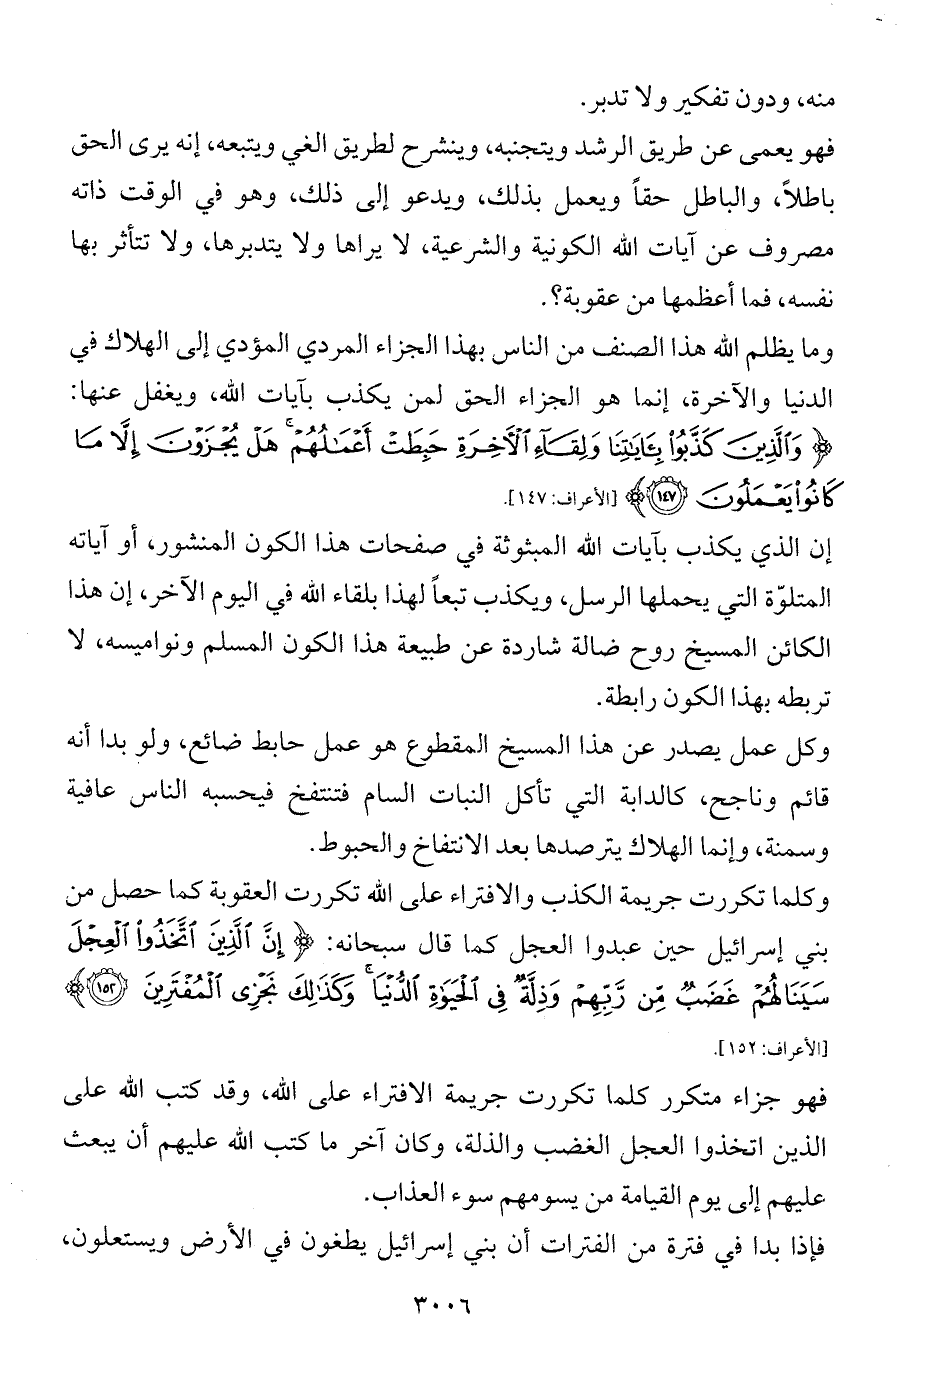 منه، ودون تفكير ولا تدبر.
فهو يعمى عن طريق الرشد ويتجنبه، وينشرح لطريق الغي ويتبعه، إنه يرى الحق
باطلاً، والباطل حقاً ويعمل بذلك، ويدعو إلى ذلك، وهو في الوقت ذاته
مصروف عن آيات الله الكونية والشرعية، لا يراها ولا يتدبرها، ولا تتأثر بها
نفسه، فما أعظمها من عقوبة؟.
وما يظلم الله هذا الصنف من الناس بهذا الجزاء المردي المؤدي إلى الهلاك في
الدنيا والآخرة، إنما هو الجزاء الحق لمن يكذب بآيات الله، ويغفل عنها:
﴿ وَٱلَّذِينَ كَذَّبُوا۟ بِـَٔايَـٰتِنَا وَلِقَآءِ ٱلْـَٔاخِرَةِ حَبِطَتْ أَعْمَـٰلُهُمْ ۚ هَلْ يُجْزَوْنَ إِلَّا مَا
كَانُوا۟ يَعْمَلُونَ ١٤٧ ﴾ [الأعراف: ١٤٧].
إن الذي يكذب بآيات الله المبثوثة في صفحات هذا الكون المنشور، أو آياته
المتلوّة التي يحملها الرسل، ويكذب تبعاً لهذا بلقاء الله في اليوم الآخر، إن هذا
الكائن المسيخ روح ضالة شاردة عن طبيعة هذا الكون المسلم ونواميسه، لا
تربطه بهذا الكون رابطة.
وكل عمل يصدر عن هذا المسيخ المقطوع هو عمل حابط ضائع، ولو بدا أنه
قائم وناجح، كالدابة التي تأكل النبات السام فتنتفخ فيحسبه الناس عافية
وسمنة، وإنما الهلاك يترصدها بعد الانتفاخ والحبوط.
وكلما تكررت جريمة الكذب والافتراء على الله تكررت العقوبة كما حصل من
بني إسرائيل حين عبدوا العجل كما قال سبحانه: ﴿ إِنَّ ٱلَّذِينَ ٱتَّخَذُوا۟ ٱلْعِجْلَ
سَيَنَالُهُمْ غَضَبٌ مِّن رَّبِّهِمْ وَذِلَّةٌ فِى ٱلْحَيَوٰةِ ٱلدُّنْيَا ۚ وَكَذَٰلِكَ نَجْزِى ٱلْمُفْتَرِينَ ١٥٢ ﴾
[الأعراف: ١٥٢].
فهو جزاء متكرر كلما تكررت جريمة الافتراء على الله، وقد كتب الله على
الذين اتخذوا العجل الغضب والذلة، وكان آخر ما كتب الله عليهم أن يبعث
عليهم إلى يوم القيامة من يسومهم سوء العذاب.
فإذا بدا في فترة من الفترات أن بني إسرائيل يطغون في الأرض ويستعلون،
٣٠٠٦